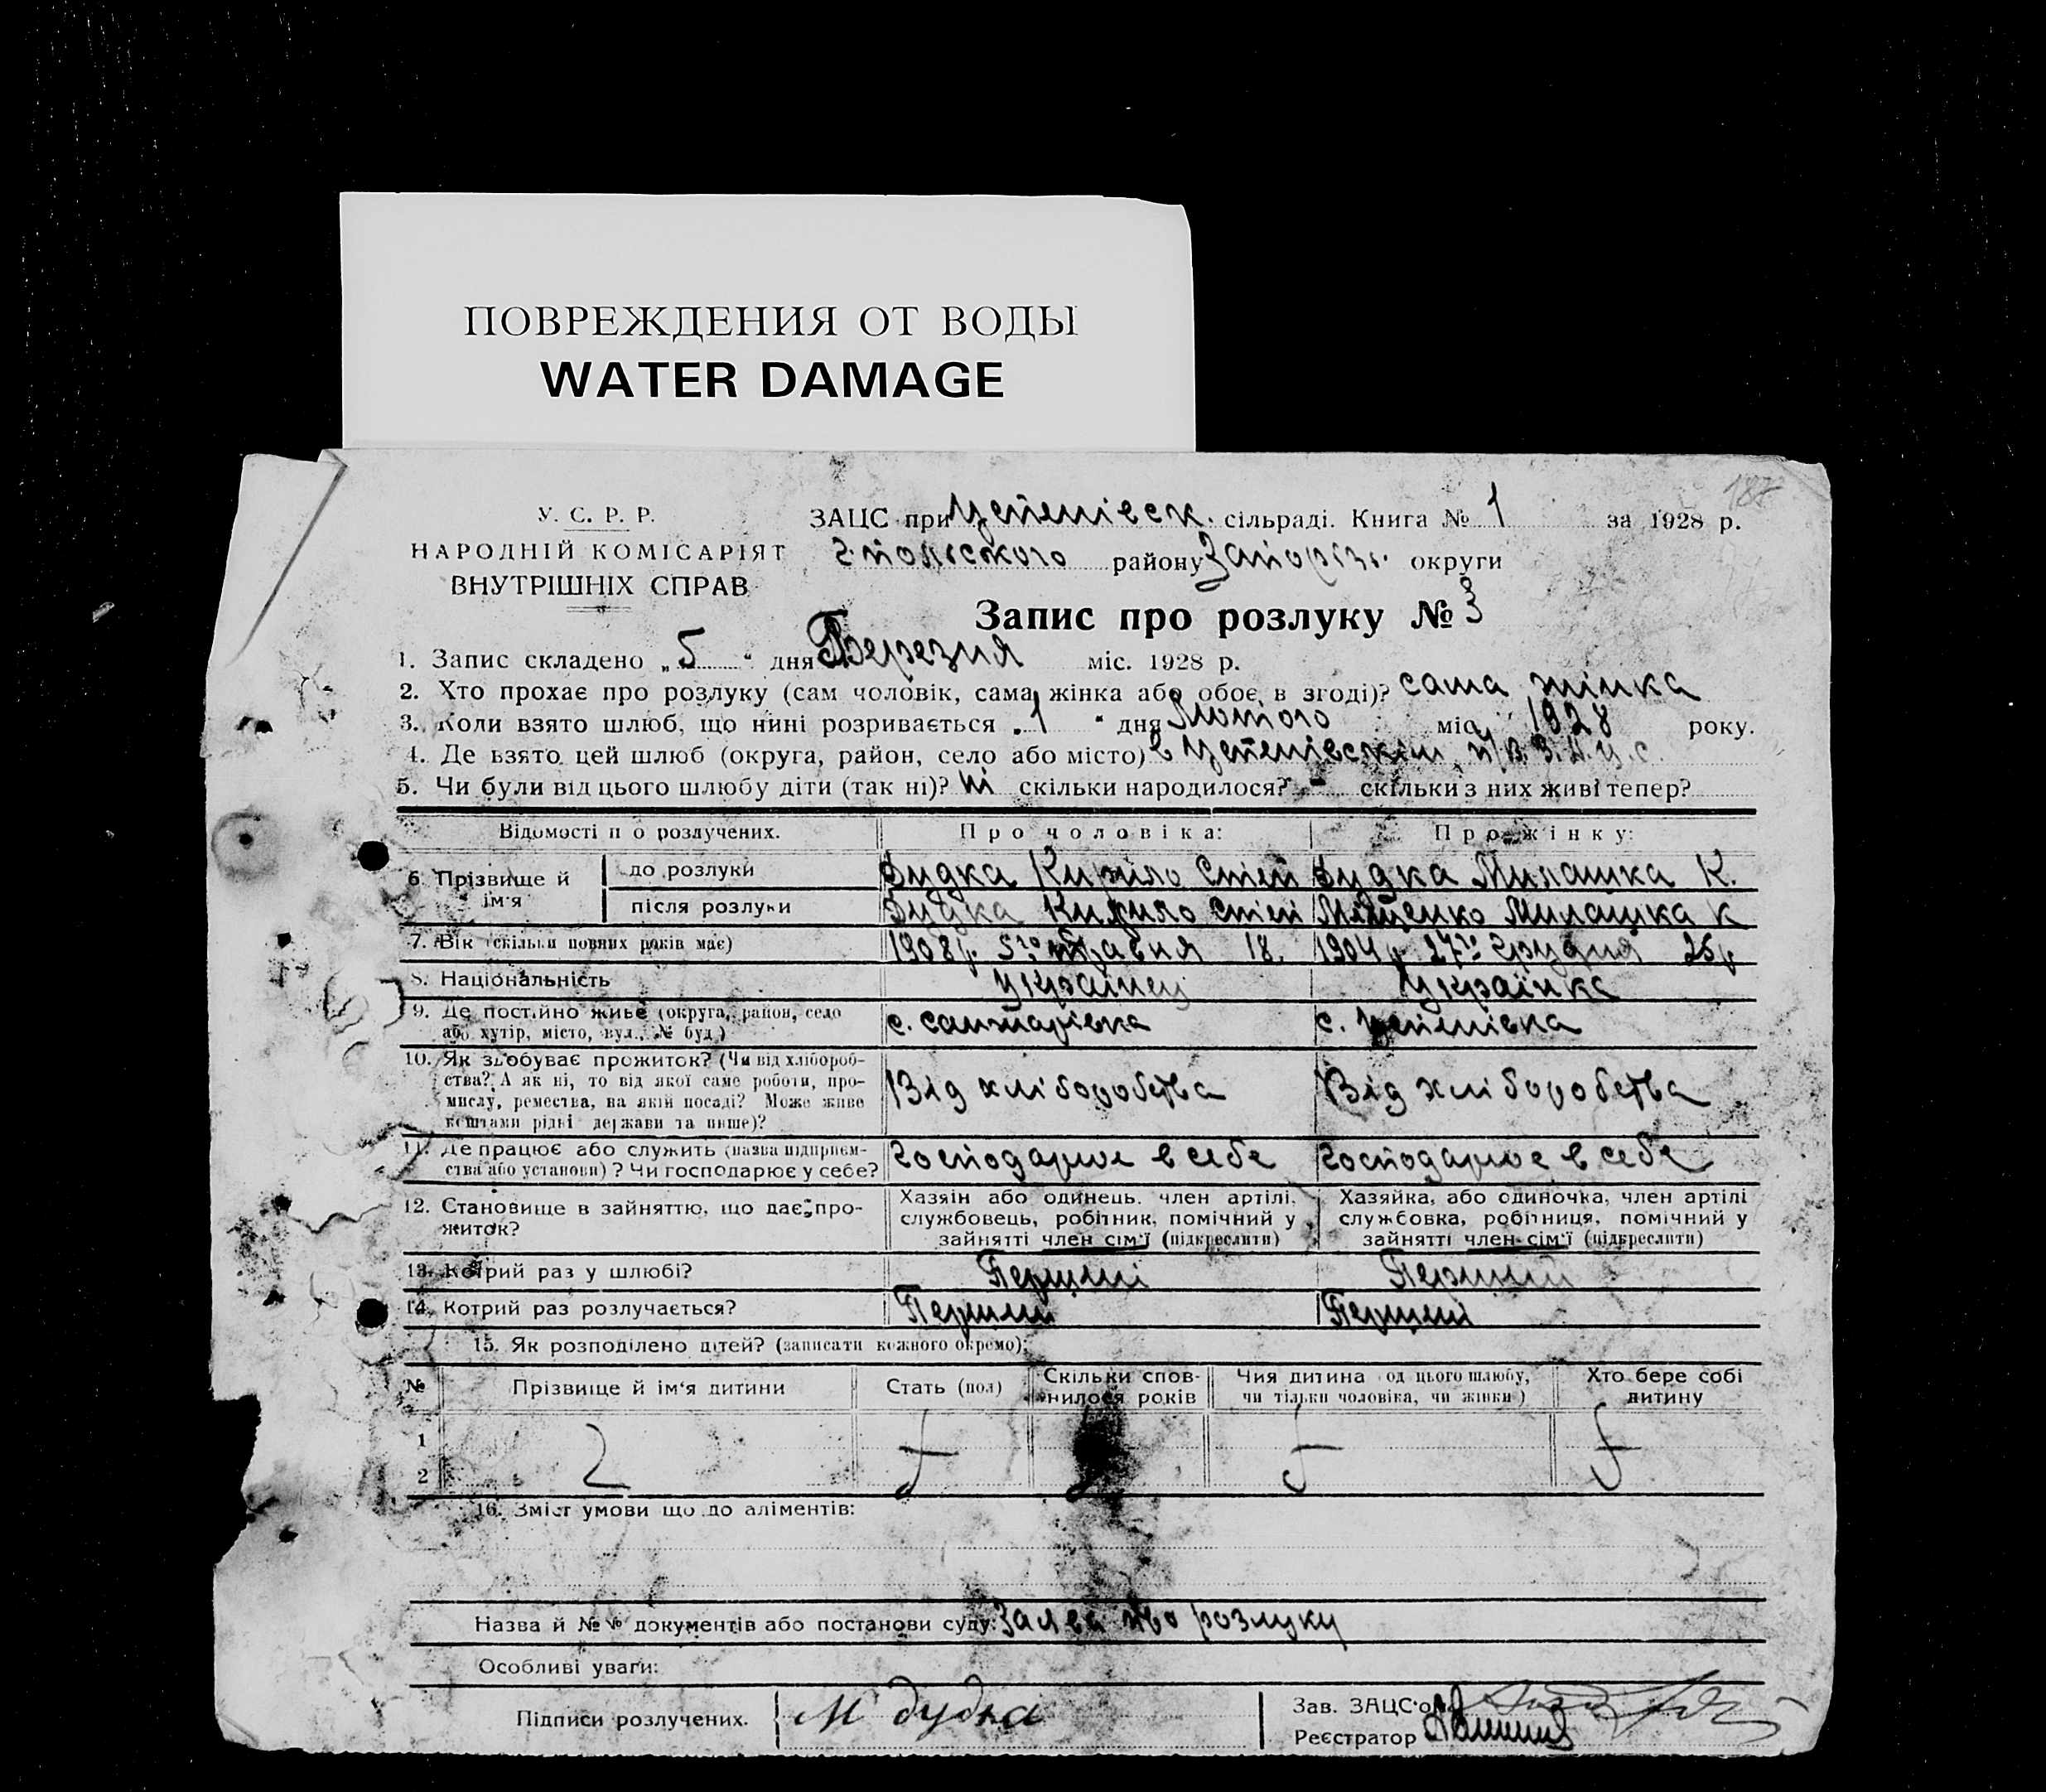 ПОВРЕЖДЕНИЯ ОТ ВОДЫ
WATER DAMAGE
187
У. С. Р. Р.
НАРОДНІЙ КОМІСАРІЯТ
ВНУТРІШНІХ СПРАВ
ЗАЦС при сільраді. Книга № 1 за 1928 р.
району Запоріз. округи
Запис про розлуку № 3
1. Запис складено „5“ дня Березня міс. 1928 р.
2. Хто прохає про розлуку (сам чоловік, сама жінка або обоє в згоді)? сама жінка
3. Коли взято шлюб, що нині розривається „1“ дня Лютого міс. 1928 року.
4. Де взято цей шлюб (округа, район, село або місто) в
5. Чи були від цього шлюбу діти (так ні)? ні скільки народилося? - скільки з них живі тепер?
Відомості по розлучених. Про чоловіка: Про жінку:
6. Прізвище й ім'я до розлуки Дудка Кирило Степ Дудка Милашка К.
після розлуки Дудка Кирило Степ Милашка К
7. Вік (скільки повних років має) 1908 р. 5го травня 18. 1904 р. 27го грудня
8. Національність Українец Українка
9. Де постійно живе (округа, район, село або хутір, місто, вул., № буд.) с. с.
10. Як здобуває прожиток? (Чи від хлібороб-
ства? А як ні, то від якої саме роботи, про-
мислу, ремества, на якій посаді? Може живе
коштами рідні держави та инше)? Від хліборобства Від хліборобства
11. Де працює або служить (назва підприєм-
ства або установи)? Чи господарює у себе? Господарює в себе Господарює в себе
12. Становище в зайняттю, що дає про-
житок? Хазяін або одинець, член артілі, службовець, робітник, помічний у зайнятті член сім'ї (підкреслити) Хазяйка, або одиночка, член артілі службовка, робітниця, помічний у зайнятті член сім'ї (підкреслити)
13. Котрий раз у шлюбі? Перший Перший
14. Котрий раз розлучається? Перший Перший
15. Як розподілено дітей? (записати кожного окремо):
№ Прізвище й ім'я дитини Стать (пол) Скільки спов-
нилося років Чия дитина (од цього шлюбу, чи тільки чоловіка, чи жінки) Хто бере собі дитину
1
2
16. Зміст умови що до аліментів:
Назва й №№ документів або постанови суду: Заява про розлуку
Особливі уваги:
Підписи розлучених. М Дудка
Зав. ЗАЦС'ом
Реєстратор